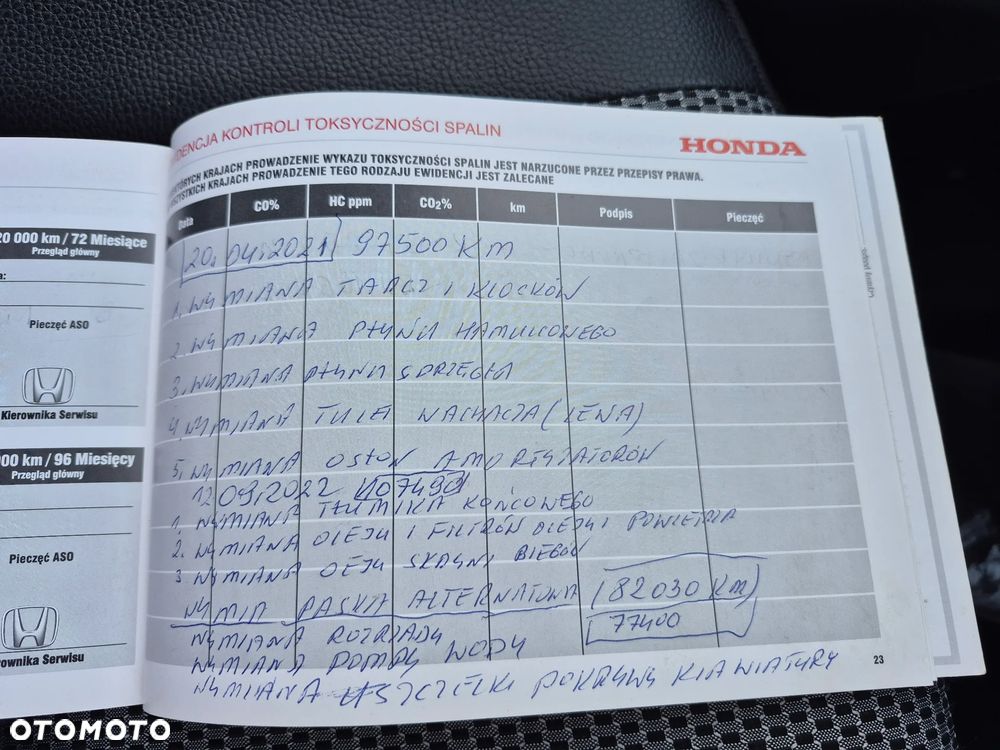 20 000 km / 72 Miesiące
Przegląd główny
Pieczęć ASO
Kierownika Serwisu
000 km / 96 Miesięcy
Przegląd główny
Pieczęć ASO
ownika Serwisu
IDENCJA KONTROLI TOKSYCZNOŚCI SPALIN
HONDA
KTÓRYCH KRAJACH PROWADZENIE WYKAZU TOKSYCZNOŚCI SPALIN JEST NARZUCONE PRZEZ PRZEPISY PRAWA.
WSZYSTKICH KRAJACH PROWADZENIE TEGO RODZAJU EWIDENCJI JEST ZALECANE
Data CO% HC ppm CO2% km Podpis Pieczęć
20.04.2021 97500 KM
1. WYMIANA TARCZ I KLOCKÓW
2. WYMIANA PŁYNU HAMULCOWEGO
3. WYMIANA PŁYNU SPRZĘGŁA
4. WYMIANA TULEI WAHACZA (LEWA)
5. WYMIANA OSŁON AMORTYZATORÓW
12.09.2022 107490
1. WYMIANA TŁUMIKA KOŃCOWEGO
2. WYMIANA OLEJU I FILTRÓW OLEJU I POWIETRZA
3. WYMIANA OLEJU SKRZYNI BIEGÓW
WYMIA PASKA ALTERNATORA (82030 KM)
77400
WYMIANA ROZRZĄDU
WYMIANA POMPY WODY
WYMIANA USZCZELKI POKRYWY KLAWIATURY
23
OTOMOTO